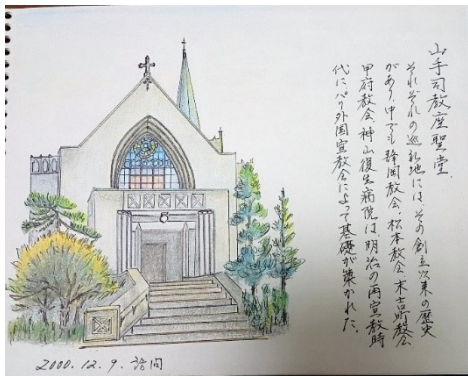 山手司教座聖堂.
それぞれの巡礼地には、その創立以来の歴史
があり中でも静岡教会、松本教会 末吉町教会
甲府教会 神山復生病院は明治の再宣教時
代にパリ外国宣教会によって基礎が築かれた。
2000.12.9. 訪問